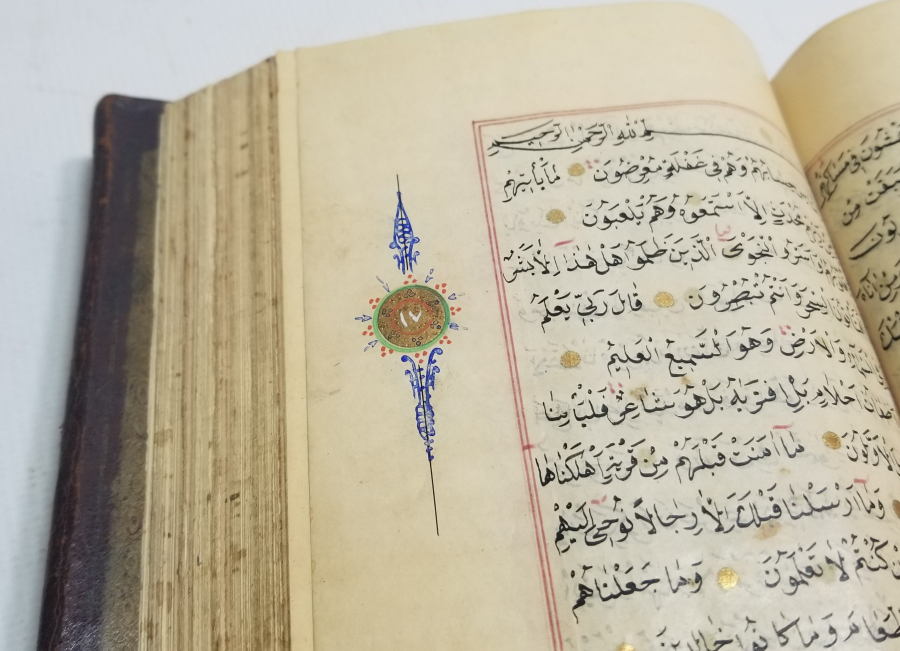 بسم الله الرحمن الرحيم
حسابهم وهم في غفلة معرضون ما يأتيهم
محدث الا استمعوه وهم يلعبون
النجوى الذين ظلموا هل هذا الا بشر
السحر وانتم تبصرون قال ربي يعلم
والارض وهو السميع العليم
احلام بل افتريه بل هو شاعر فلياتنا
الاولون ما امنت قبلهم من قرية اهلكناها
وما ارسلنا قبلك الا رجالا نوحي اليهم
كنتم لا تعلمون وما جعلناهم
الطعام وما كانوا خالدين
١٧